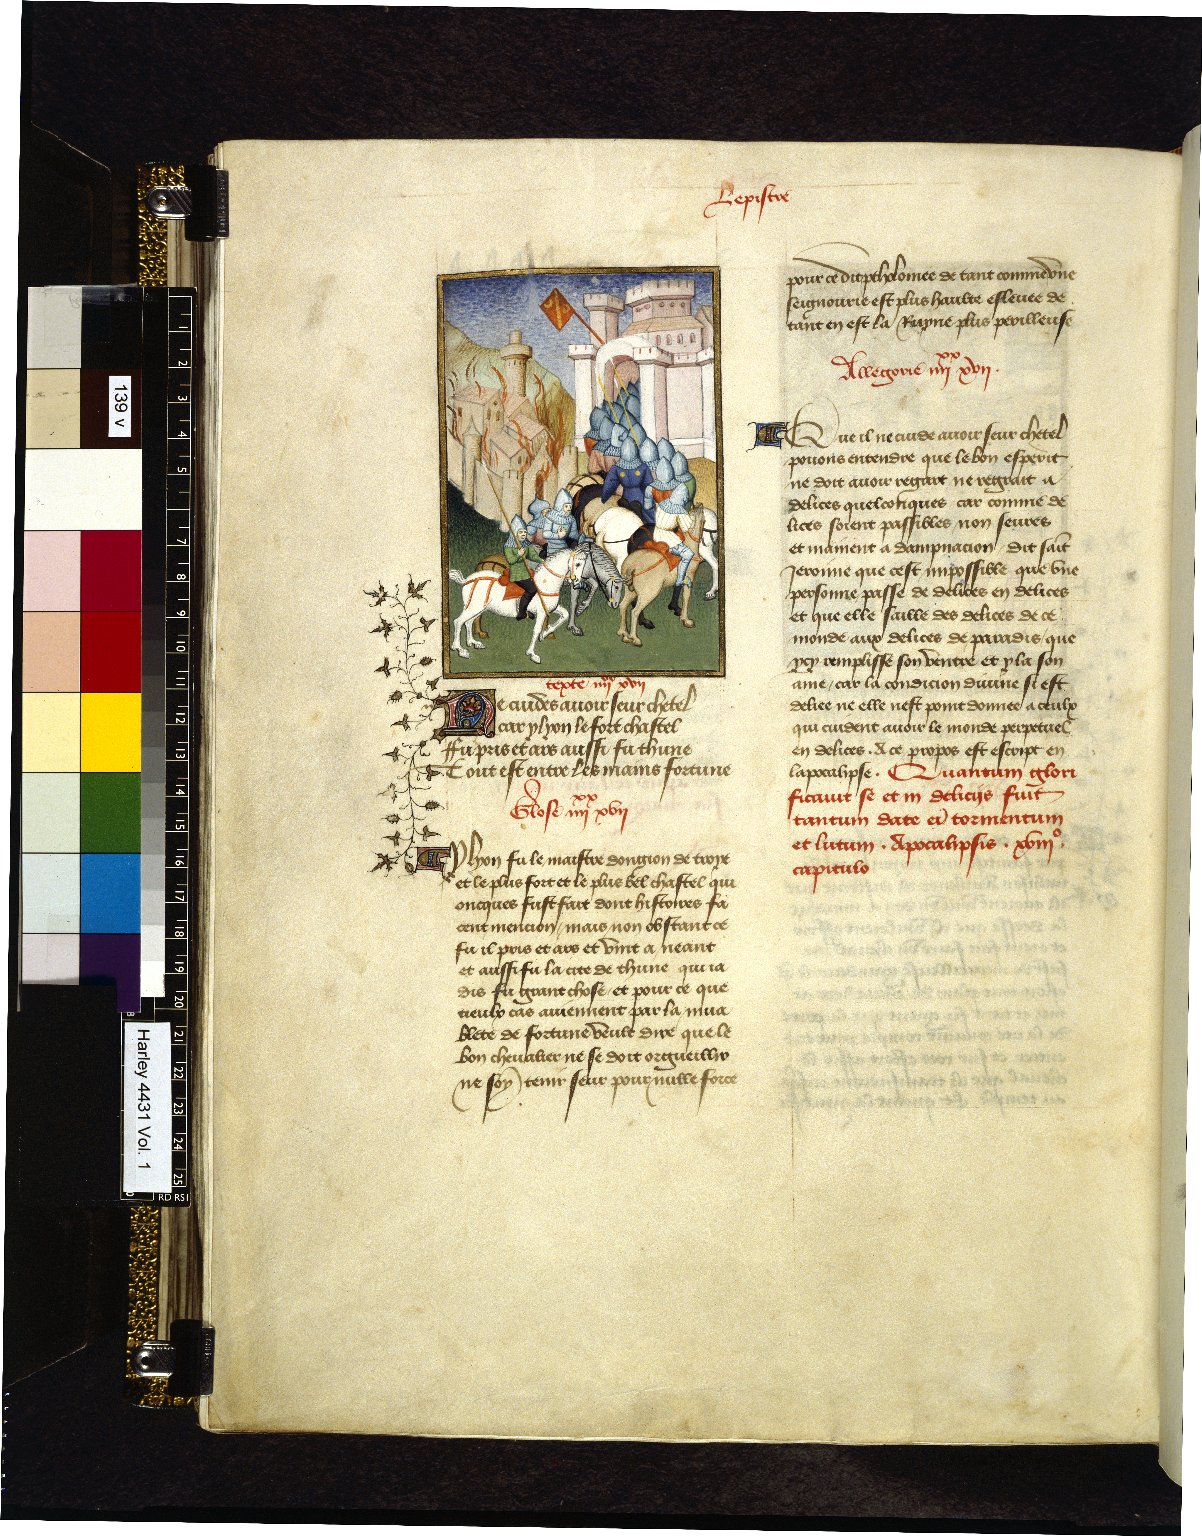 Lepistre
texte iiii xx xvii
Ne cuides avoir seur chetel
car ylyon le fort chastel
Fu pris et ars aussi fu thune
Tout est entre les mains fortune
Glose iiii xx xvii
Ylyon fu le maistre dongion de troye
et le plus fort et le plus bel chastel qui
oncques fust fait dont histoires fa
cent mencion / mais non obstant ce
fu il pris et ars et vint a neant
et aussi fu la cite de thune qui ia
dis fu grant chose / et pour ce que
tieulx cas aviennent par la mua
blete de fortune veult dire que le
bon chevalier ne se doit orgueillir
ne soy tenir seur pour nulle force
pour ce dit ptholomee de tant comme une
seignourie est plus haulte eslevee de
tant en est la Ruyne plus perilleuse
Allegorie iiii xx xvii.
Que il ne cuide avoir seur chetel
povons entendre que le bon esperit
ne doit avoir regart ne regrait a
delices quelconques car comme de
lices soient passibles non seures
et mainent a dampnacion / dit saît
Jerome que cest impossible que une
personne passe de delices en delices
et que elle saille des delices de ce
monde aux delices de paradis / que
ycy remplisse son ventre et y la son
ame / car la condicion divine si est
deliee ne elle nest point donnee a ceulx
qui cuident avoir le monde perpetuel
en delices. A ce propos est escript en
lapocalipse. Quantum glori
ficavit se et in deliciis fuit
tantum date ei tormentum
et lutum. Apocalipsis. xviii°.
capitulo
139 v
Harley 4431 Vol. 1
2
3
4
5
7
8
9
10
11
12
13
14
15
16
17
18
19
20
21
22
23
24
25